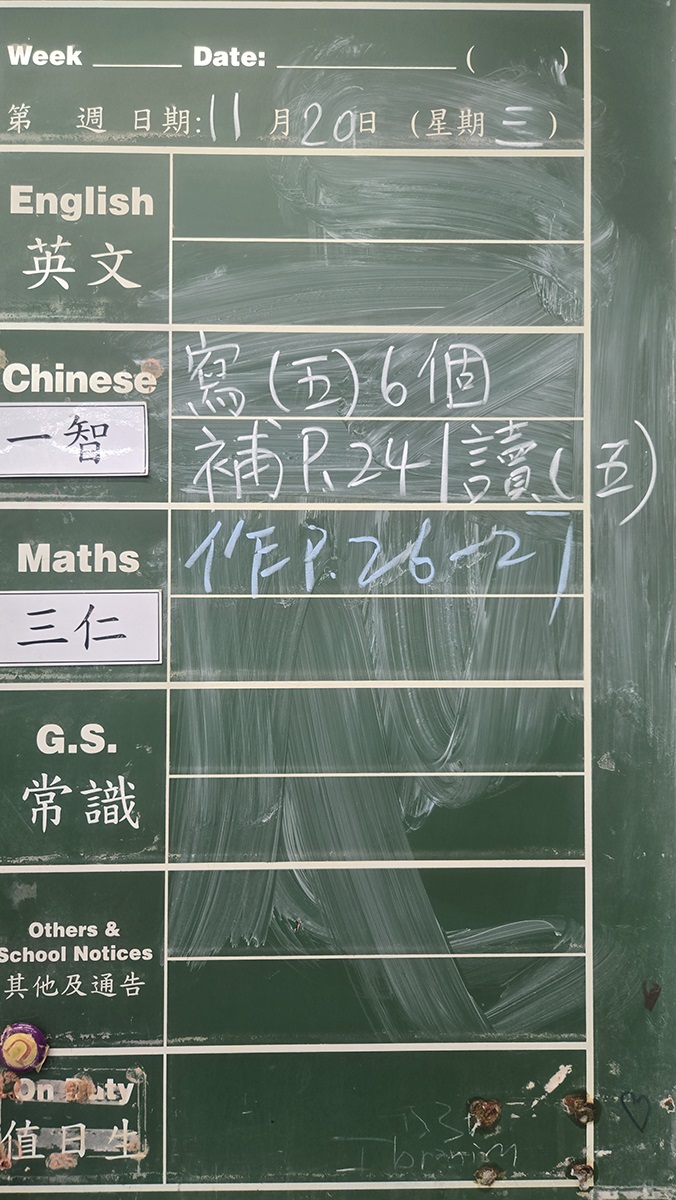 Week ______ Date: ____________ (      )
第 週 日期: 11 月 20 日 (星期 三)
English
英文
Chinese
寫 (五) 6 個
一智
補 P. 24 | 讀 (五)
Maths
作 P. 26-27
三仁
G.S.
常識
Others &
School Notices
其他及通告
On Duty
值日生